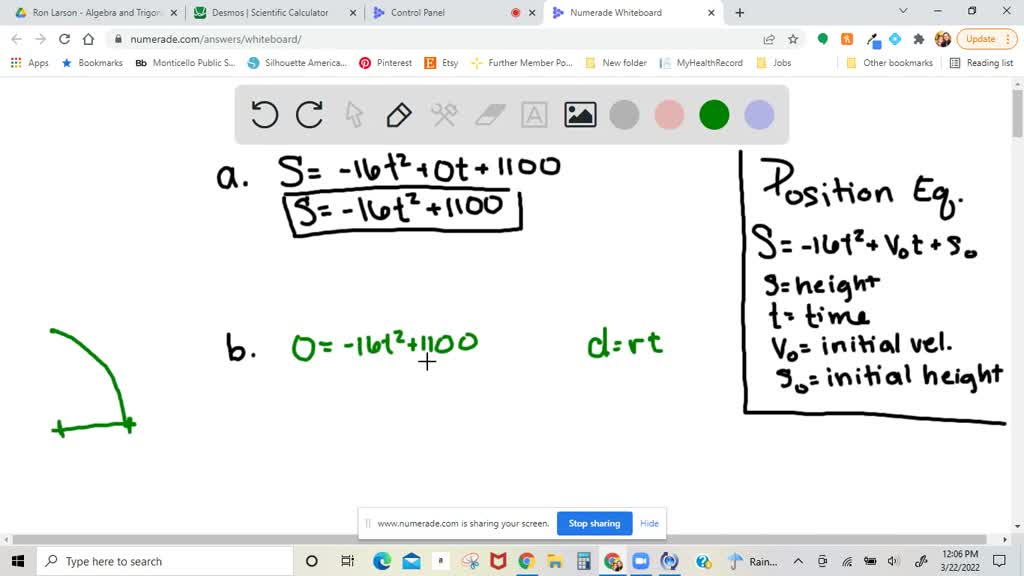 Ron Larson - Algebra and Trigon
Desmos | Scientific Calculator
Control Panel
Numerade Whiteboard
numerade.com/answers/whiteboard/
Update
Apps
Bookmarks
Bb Monticello Public S...
Silhouette America...
Pinterest
Etsy
Further Member Po...
New folder
MyHealthRecord
Jobs
Other bookmarks
Reading list
A
a. S = -16t² + 0t + 1100
S = -16t² + 1100
Position Eq.
S = -16t² + V₀t + S₀
S = height
t = time
V₀ = initial vel.
S₀ = initial height
b. 0 = -16t² + 1100
d = rt
www.numerade.com is sharing your screen.
Stop sharing
Hide
Type here to search
a
Rain...
12:06 PM
3/22/2022